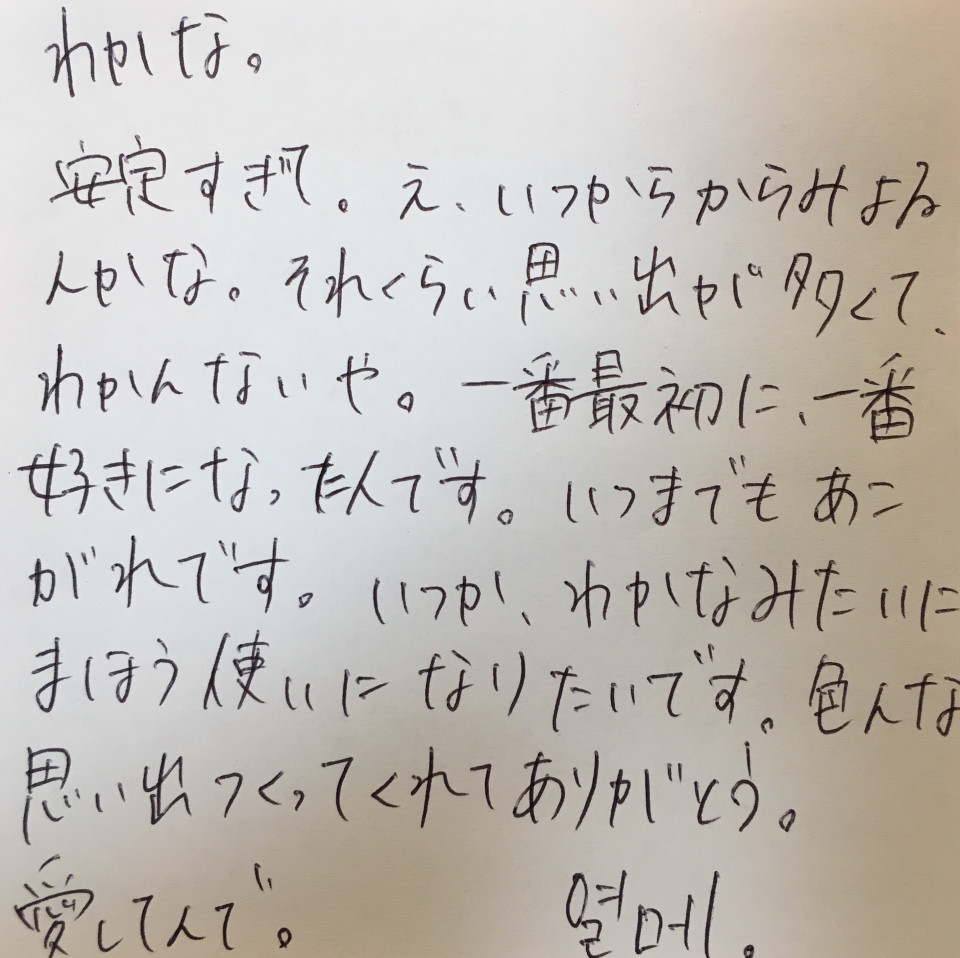 わかな。
安定すぎて。え、いつからからみよる
んかな。それくらい思い出が多くて、
わかんないや。一番最初に、一番
好きになったんです。いつまでもあこ
がれです。いつか、わかなみたいに
まほう使いになりたいです。色んな
思い出つくってくれてありがとう。
愛してんで。 열매。